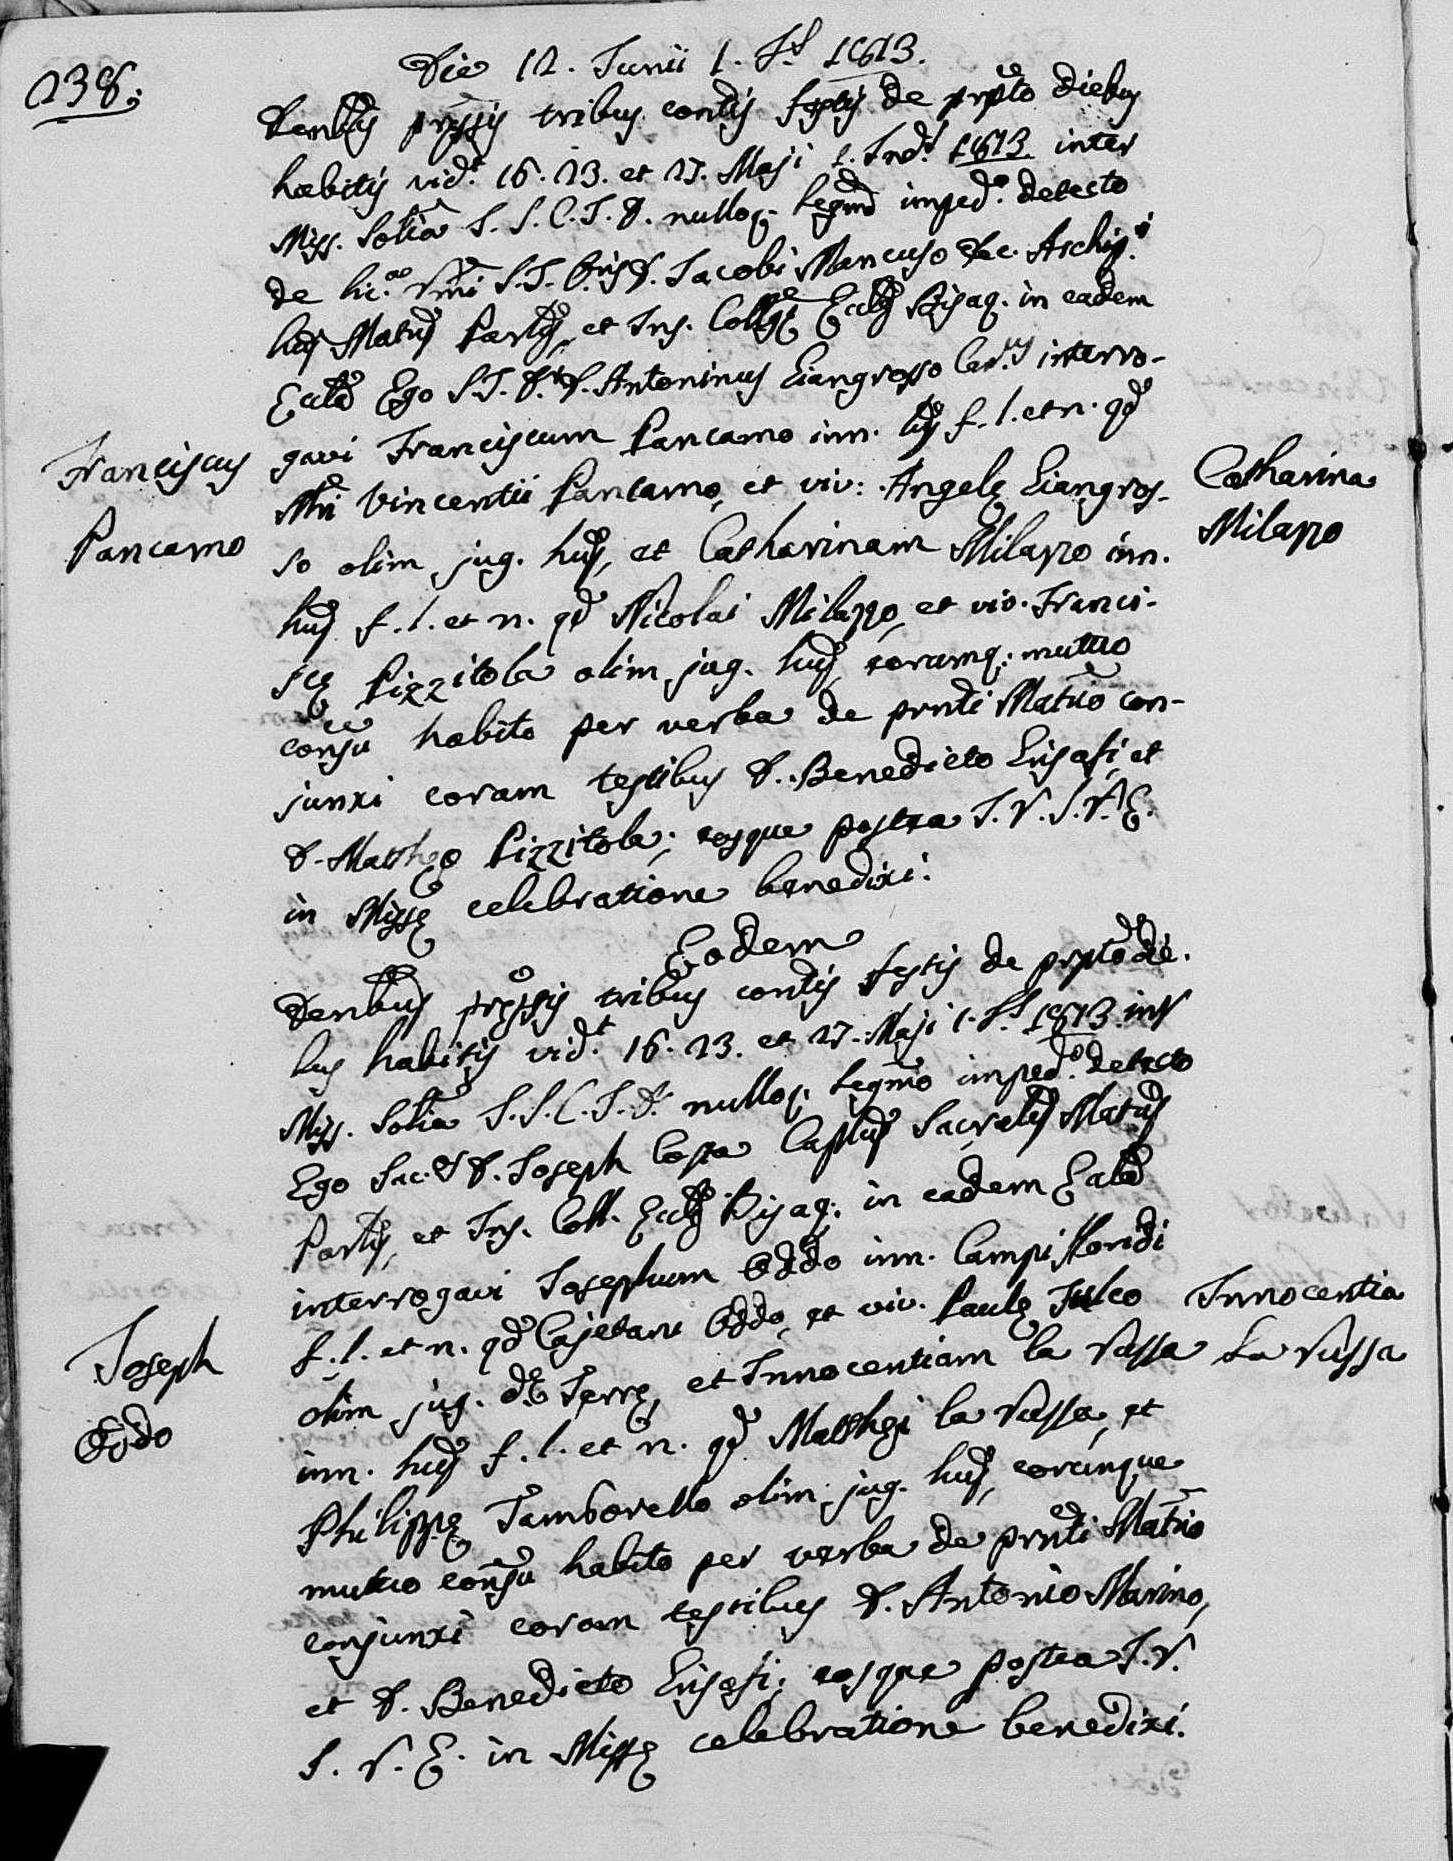 238.
Die 12. Junii 1. Ind. 1813.
Denũis prẽssis tribus contĩs festis de prpto diebus
habitis vidt. 16. 23. et 27. Maji 1. Ind. 1813. inter
Miss. Solia S. S. C. T. D. nulloq. legmo imped.o detecto
de lic.a Rmi S. T. D. D. Jacobi Mancuso Dec. Archip.i
huj Matris Parlis, et Ins. Collgt Ecclę Bisaq. in eadem
Ecclã Ego S. T. D. D. Antoninus Giangrosso Can.us interro-
gavi Franciscum Pancamo inn. huj f. l. et n. qd
Mri Vincentii Pancamo, et viv: Angelę Giangros-
so olim jug. huj, et Catharinam Milazzo inn.
huj f. l. et n. qd Nicolai Milazzo, et viv. Franci-
scę Pizzitola olim jug. huj, eorumq. mutuo
consũ habito per verba de prnti Matrio con-
junxi coram testibus D. Benedicto Grisafi, et
D. Mattheo Pizzitola; eosque postea J. R. S. R. E.
in Missę celebratione benedixi.
Franciscus
Pancamo
Catharina
Milazzo
Eodem
Denũis prẽssis tribus contĩs festis de prpto die-
bus habitis vidt. 16. 23. et 27. Maji 1. Ind. 1813. intr
Miss. Solia S. S. C. T. D. nulloq. legmo imped.o detecto
Ego Sac. D. D. Joseph Costa Capplus Sacralis Matris
Parlis, et Ins. Coll. Ecclę Bisaq. in eadem Ecclã
interrogavi Josephum Oddo inn. Campi floridi
f. l. et n. qd Cajetani Oddo, et viv. Paulę Fulco
olim jug. dę Terrę, et Innocentiam la Russa
inn. huj f. l. et n. qd Matthęi la Russa, et
Philippę Tamborello olim jug. huj, eorumque
mutuo consũ habito per verba de prnti Matrio
conjunxi coram testibus D. Antonio Marino,
et D. Benedicto Grisafi; eosque postea J. R.
S. R. E. in Missę celebratione benedixi.
Joseph
Oddo
Innocentia
La Russa